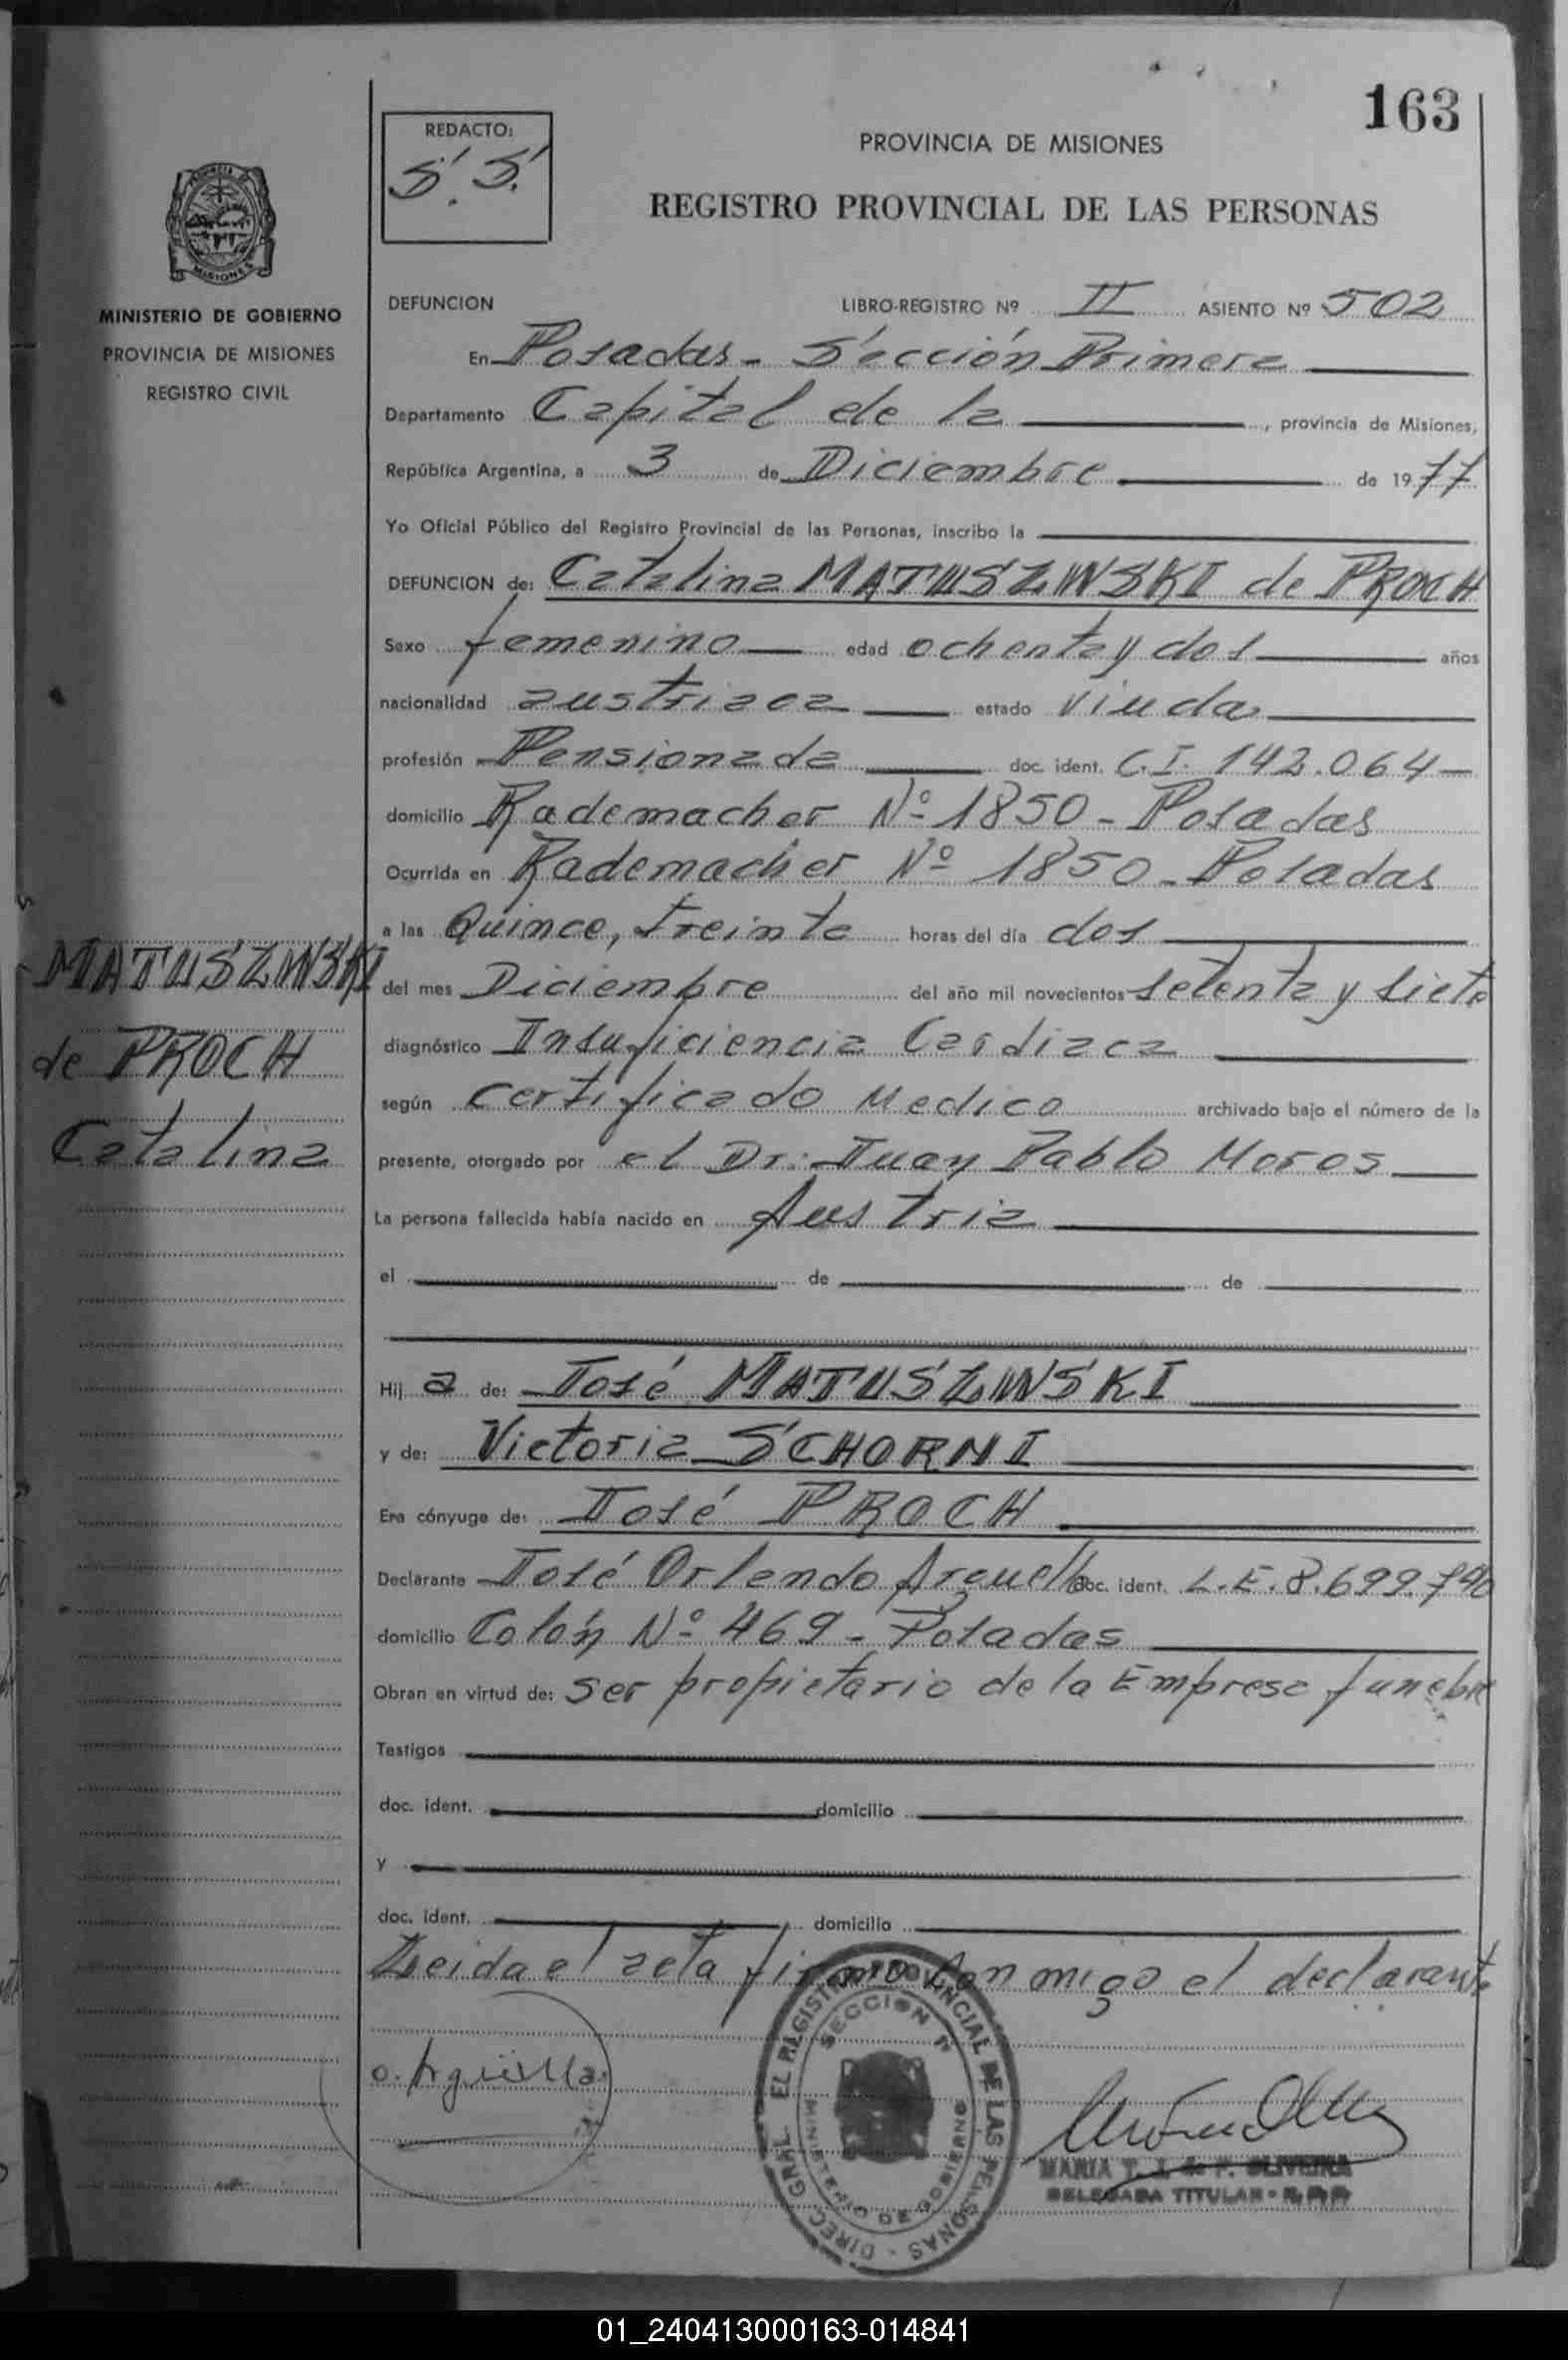 163
REDACTO:
S. S.
PROVINCIA DE MISIONES
REGISTRO PROVINCIAL DE LAS PERSONAS
PROVINCIA DE
MISIONES
MINISTERIO DE GOBIERNO
PROVINCIA DE MISIONES
REGISTRO CIVIL
DEFUNCION LIBRO-REGISTRO Nº II ASIENTO Nº 502
En Posadas - Sección Primera
Departamento Capital de la , provincia de Misiones,
República Argentina, a 3 de Diciembre de 1977
Yo Oficial Público del Registro Provincial de las Personas, inscribo la
DEFUNCION de: Catalina MATUSZWSKI de PROCH
Sexo femenino edad ochenta y dos años
nacionalidad austriaca estado viuda
profesión Pensionada doc. ident. C.I. 142.064
domicilio Rademacher Nº 1850 - Posadas
Ocurrida en Rademacher Nº 1850 - Posadas
a las Quince, treinta horas del día dos
del mes Diciembre del año mil novecientos setenta y siete
diagnóstico Insuficiencia Cardiaca
según Certificado Medico archivado bajo el número de la
presente, otorgado por el Dr. Juan Pablo Moros
La persona fallecida había nacido en Austria
el de de
Hij a de: José MATUSZWSKI
y de: Victoria SCHORNI
Era cónyuge de: José PROCH
Declarante José Orlando Arguello doc. ident. L.E. 8.699.740
domicilio Colón Nº 469 - Posadas
Obran en virtud de: ser propietario de la Empresa funebre
Testigos
doc. ident. domicilio
y
doc. ident. domicilio
Leida el acta firmo conmigo el declarante
MATUSZWSKI
de PROCH
Catalina
DIREC. GRAL. EL REGISTRO PROVINCIAL DE LAS PERSONAS
SECCION 1ª
MINISTERIO DE GOBIERNO
MARIA T. J. de F. OLIVEIRA
DELEGADA TITULAR - R.P.P.
01_240413000163-014841